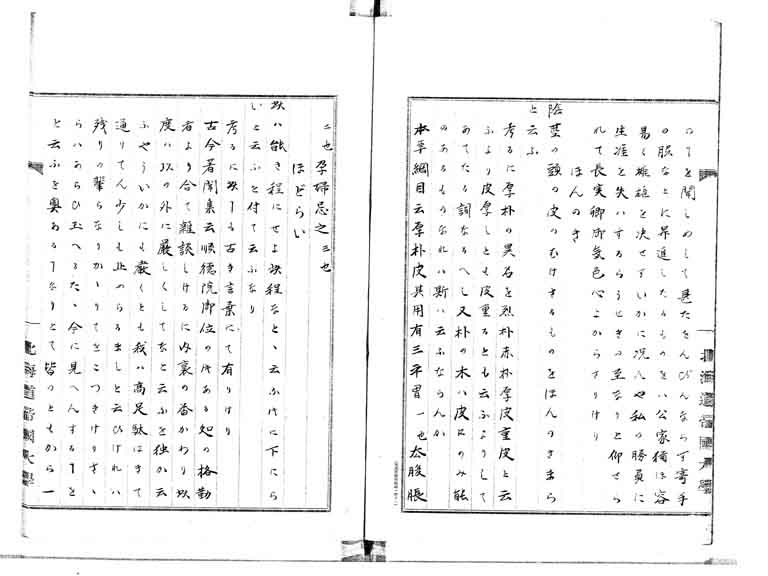 つてを聞しめして見たをんびんならず寄手
の服なとに昇進したるものをハ公家猶ほ容
易く雌雄を決せすいかに况んや私の勝負に
生涯を失ハするらうせきの至なりと仰せら
れて長実卿御気色心よからすりけり
ほんのき
陰茎の頭の皮のむけさるものをほんのきまら
と云ふ
考るに厚朴の異名を烈朴赤朴厚皮重皮と云
ふより皮厚しとも皮重るとも云ふよりして
あてたる詞なるへし又朴の木ハ皮にのみ能
のあるものなれハ斯ハ云ふならんか
本草綱目云厚朴皮其用有三平胃一也去腹脹
二也孕婦忌之三也
ほどらい
吹ハ能き程にせよ吹程なとゝ云ふ時に下にら
いと云ふを付て云ふなり
考るに吹しも古き言葉にて有りけり
古今著聞集云順徳院御位の時ある知の格勤
者より合て雑談しけるに内裏の番かわり以
度ハ以の外に厳しくしてなと云ふを独か云
ふやういかにも厳くとも我ハ高足駄はきて
通りてん少しも止のらるましと云ひけれハ
残りの輩らなりかゝりてをこつきけりさゝ
らハあらひ玉へるたゝ今に見へんするを
と云ふを興あるすなりとて皆のともから一
北海道帝国大学
北海道帝国大学